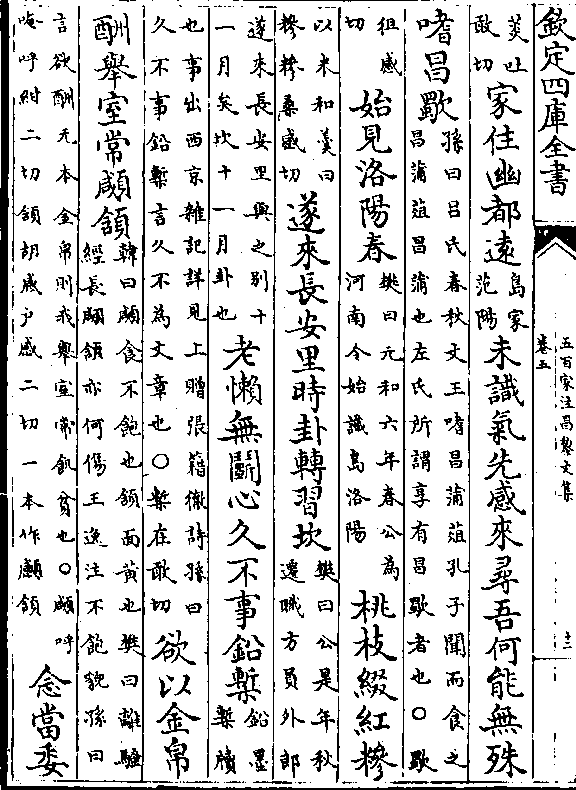 欽定四庫全書
五百家注昌黎文集
卷五
十二
菼吐敢切家住幽都遠島家范陽未識氣先感來尋吾何能無殊
嗜昌歜孫曰呂氏春秋文王嗜昌蒲菹孔子聞而食之昌蒲菹昌蒲也左氏所謂享有昌歜者也〇歜
徂感切始見洛陽春樊曰元和六年春公為河南令始識島洛陽桃枝綴紅糝
以米和羹曰糝糝桑感切遂來長安里時卦轉習坎樊曰公是年秋遷職方員外郎
遂來長安里與之别十一月矣坎十一月卦也老懶無鬭心久不事鉛槧鉛墨槧牘
也事出西京雜記詳見上贈張籍徹詩孫曰久不事鉛槧言久不為文章也〇槧在敢切欲以金帛
酬舉室常顑頷韓曰顑食不飽也頷面黃也樊曰離騷經長顑頷亦何傷王逸注不飽貌孫曰
言欲酬无本金帛則我舉室常飢貧也〇顑呼唵呼紺二切頷胡感戶感二切一本作顣頷念當委